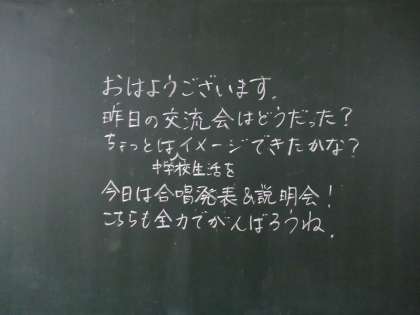 おはようございます。
昨日の交流会はどうだった？
ちょっとはイメージできたかな？
中学校生活を
今日は合唱発表&説明会！
こちらも全力でがんばろうね。